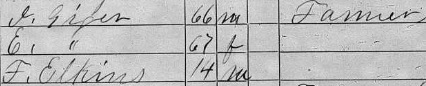 J. Gifen 66 m Farmer
E. " 67 f
F. Elkins 14 m